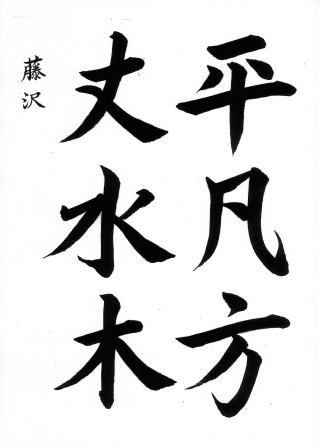 平凡方
丈水木
藤沢